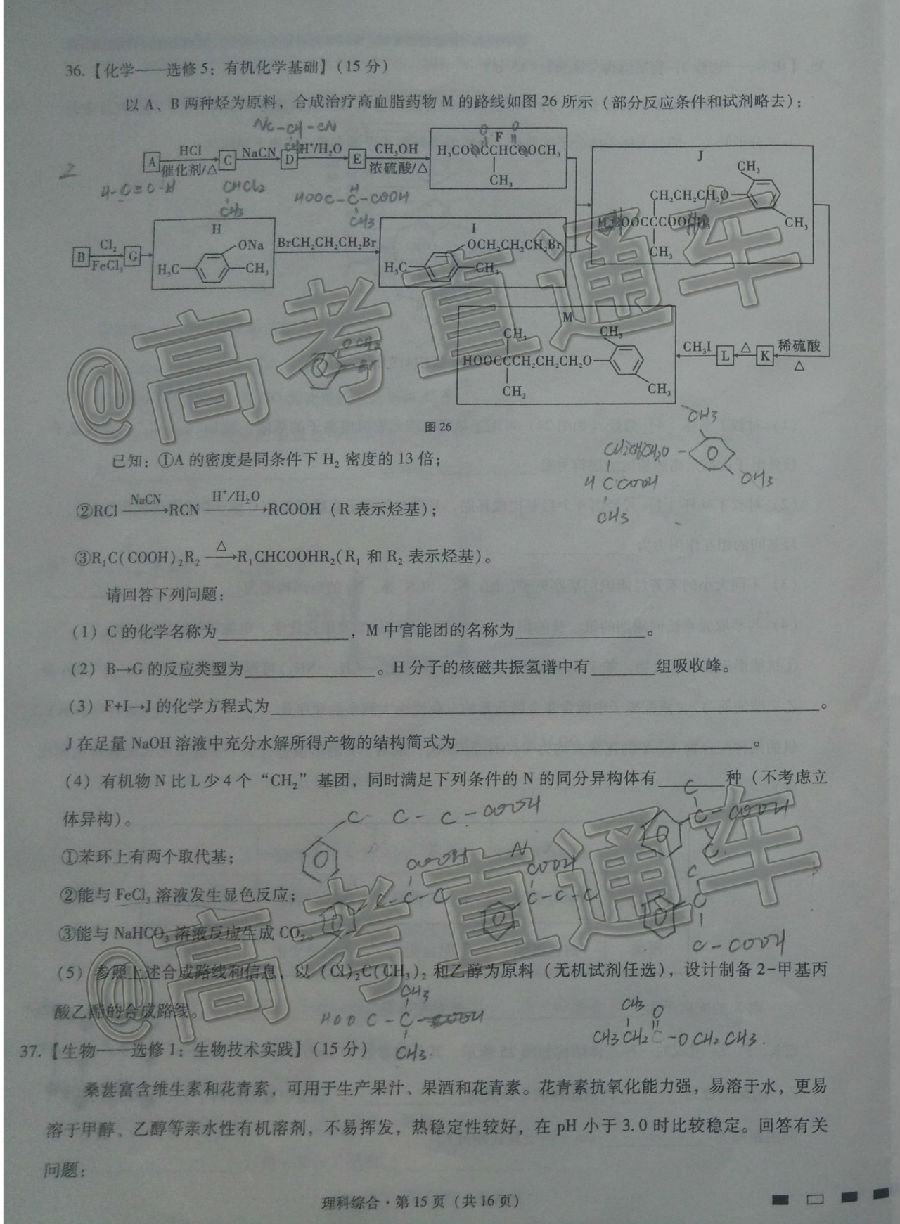 36.【化学——选修5：有机化学基础】(15分)
以A、B两种烃为原料，合成治疗高血脂药物M的路线如图26所示（部分反应条件和试剂略去）：
NC-CH-CN
A HCl 催化剂/△ C NaCN D H⁺/H₂O E CH₃OH 浓硫酸/△ F H₃COOCCHCOOCH₃ CH₃
J CH₂CH₂CH₂O CH₃ CH₃ CH₃
H-C≡C-H CHCl₂ CH₃ HOOC-CH-COOH CH₃
B Cl₂ FeCl₃ G H ONa H₃C CH₃ BrCH₂CH₂CH₂Br I OCH₂CH₂CH₂Br H₃C CH₃
M CH₃ HOOCCCH₂CH₂CH₂O CH₃ CH₃ CH₃ CH₃I L △ K 稀硫酸 △
图26
已知：①A的密度是同条件下H₂密度的13倍；
CH₃
CH₃
H C COOH
CH₃
②RCl NaCN→RCN H⁺/H₂O→RCOOH（R表示烃基）；
③R₁C(COOH)₂R₂ △→R₁CHCOOHR₂(R₁和R₂表示烃基)。
请回答下列问题：
(1) C的化学名称为____________，M中官能团的名称为____________。
(2) B→G的反应类型为____________。H分子的核磁共振氢谱中有______组吸收峰。
(3) F+I→J的化学方程式为____________。
J在足量NaOH溶液中充分水解所得产物的结构简式为____________。
(4) 有机物N比L少4个“CH₂”基团，同时满足下列条件的N的同分异构体有______种（不考虑立
体异构）。
C-C-C-COOH
①苯环上有两个取代基；
②能与FeCl₃溶液发生显色反应；
③能与NaHCO₃溶液反应生成CO₂。
C-COOH
(5) 参照上述合成路线和信息，以(Cl)₂C(CH₃)₂和乙醇为原料（无机试剂任选），设计制备2-甲基丙
酸乙酯的合成路线。
CH₃
HOOC-C-COOH
CH₃
CH₃ O
CH₃CH₂C-OCH₂CH₃
37.【生物——选修1：生物技术实践】(15分)
桑葚富含维生素和花青素，可用于生产果汁、果酒和花青素。花青素抗氧化能力强，易溶于水，更易
溶于甲醇、乙醇等亲水性有机溶剂，不易挥发，热稳定性较好，在pH小于3.0时比较稳定。回答有关
问题：
理科综合·第15页（共16页）
@高考直通车
@高考直通车